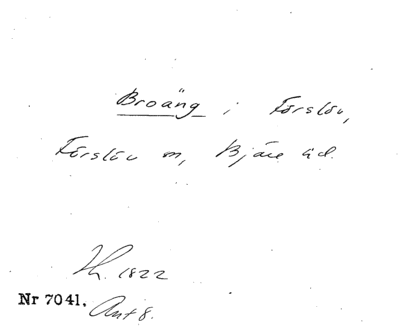 Broäng i Förslöv,
Förslöv sn, Bjäre hd.
Th. 1822
Nr 7041.
Avt 8.